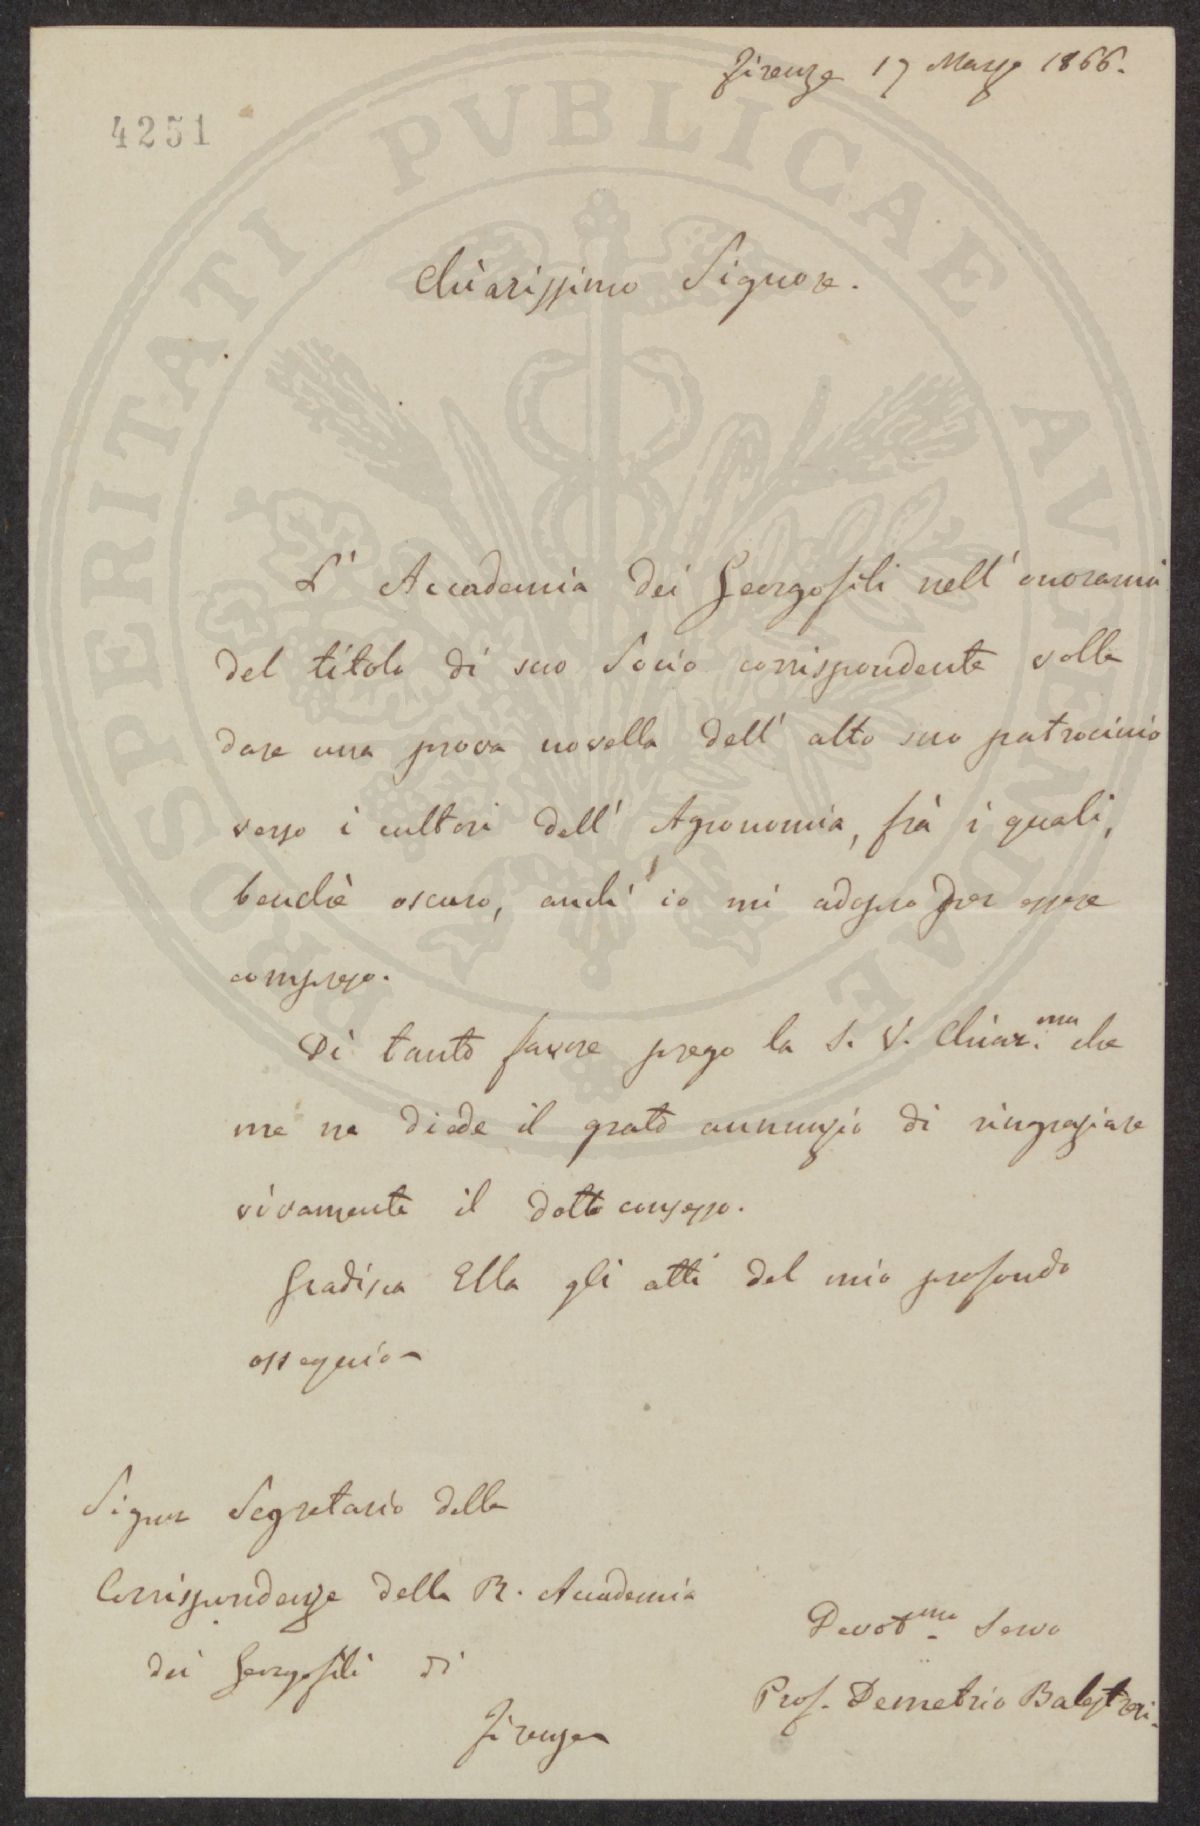 Firenze 17 Marzo 1866.
4251
PROSPERITATI PUBLICAE AUGENDAE
Chiarissimo Signore.
L' Accademia dei Georgofili nell' onorarmi
del titolo di suo Socio corrispondente volle
dare una prova novella dell' alto suo patrocinio
verso i cultori dell' Agronomia, frà i quali,
benchè oscuro, anch' io mi adopro per essere
compreso.
Di tanto favore prego la S. V. Chiar.ma che
me ne diede il grato annunzio di ringraziare
vivamente il dotto consesso.
Gradisca Ella gli atti del mio profondo
ossequio
Signor Segretario delle
Corrispondenze della R. Accademia
dei Georgofili di
Firenze
Devotmo Servo
Prof. Demetrio Balestreri.